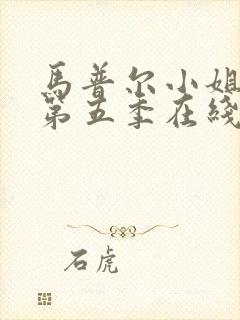 馬普尔小姐
第五季在綫
石虎